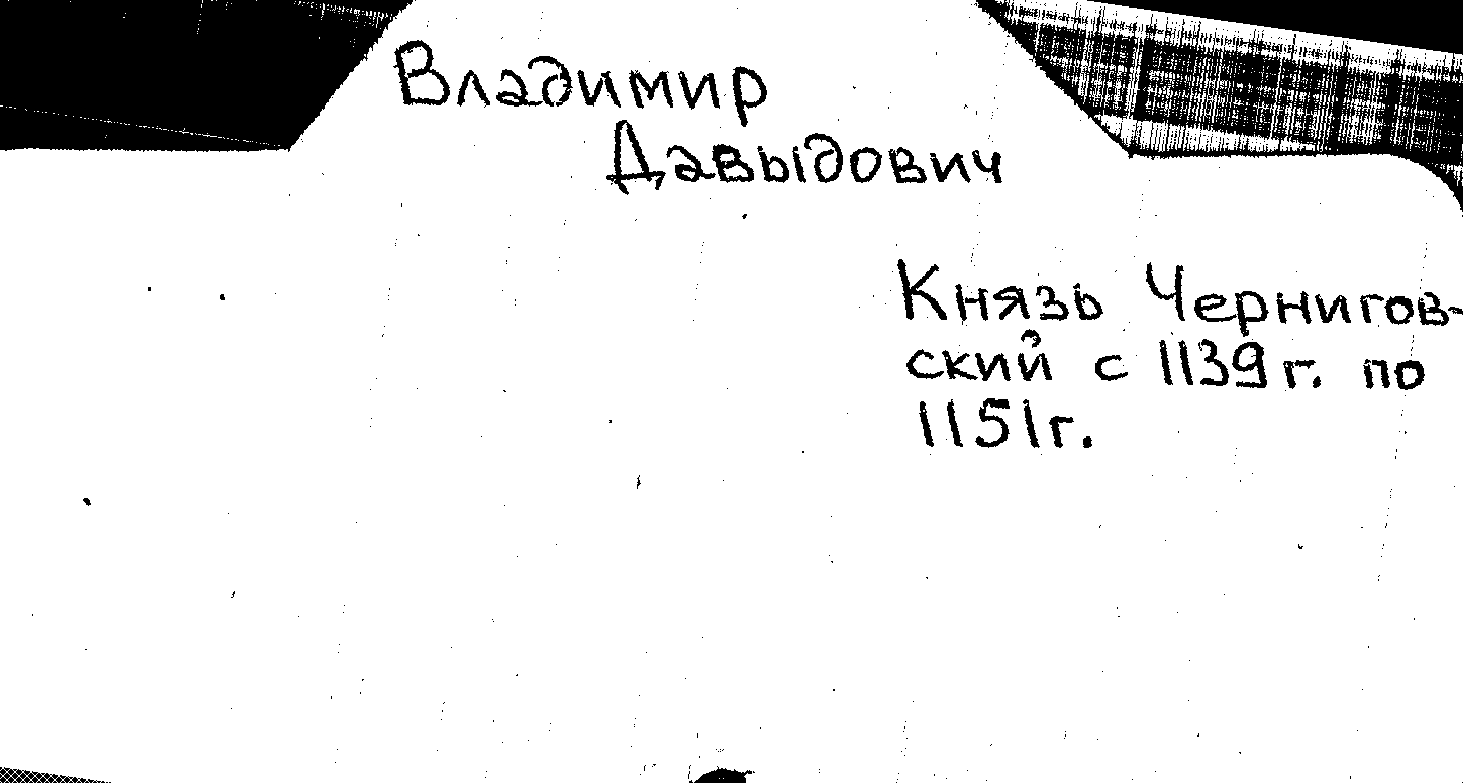 Владимир
Давыдович
Князь Чернигов-
ский с 1139 г. по
1151 г.